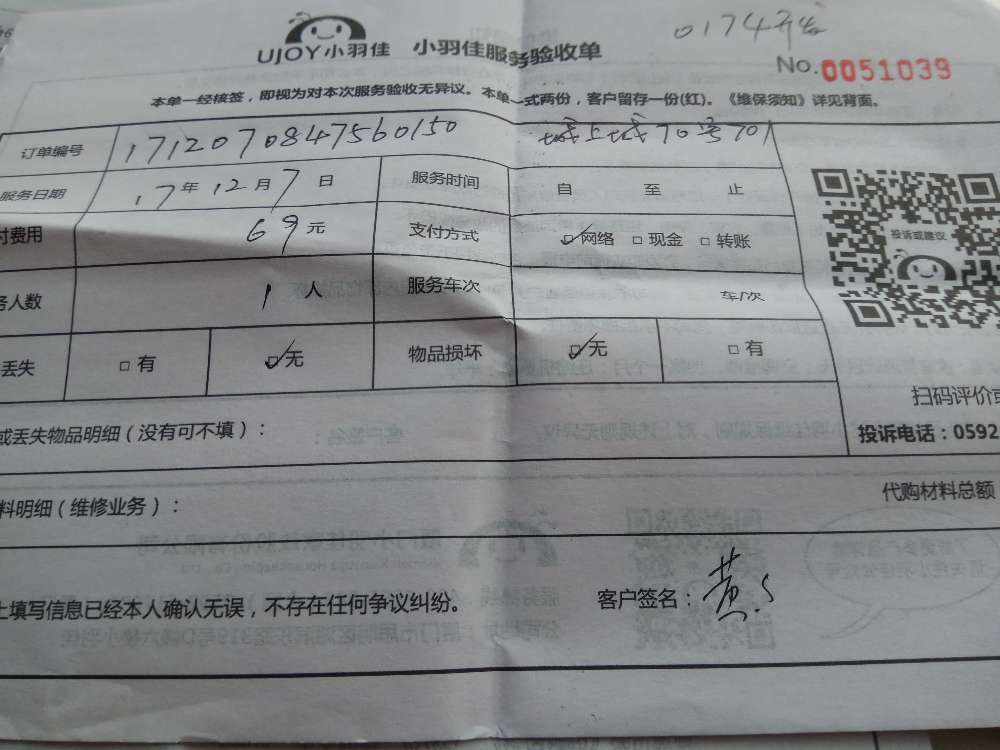 0174
UJOY小羽佳 小羽佳服务验收单
No.0051039
本单一经核签，即视为对本次服务验收无异议。本单一式两份，客户留存一份(红)。《维保须知》详见背面。
订单编号 1712070847560150 城上城70号701
服务日期 17年12月7日 服务时间 自 至 止
付费用 69元 支付方式 ☑网络 □现金 □转账
务人数 1人 服务车次 车/次
丢失 □有 ☑无 物品损坏 ☑无 □有
投诉或建议
扫码评价或
投诉电话：0592
或丢失物品明细（没有可不填）：
料明细（维修业务）： 代购材料总额
上填写信息已经本人确认无误，不存在任何争议纠纷。 客户签名：黄